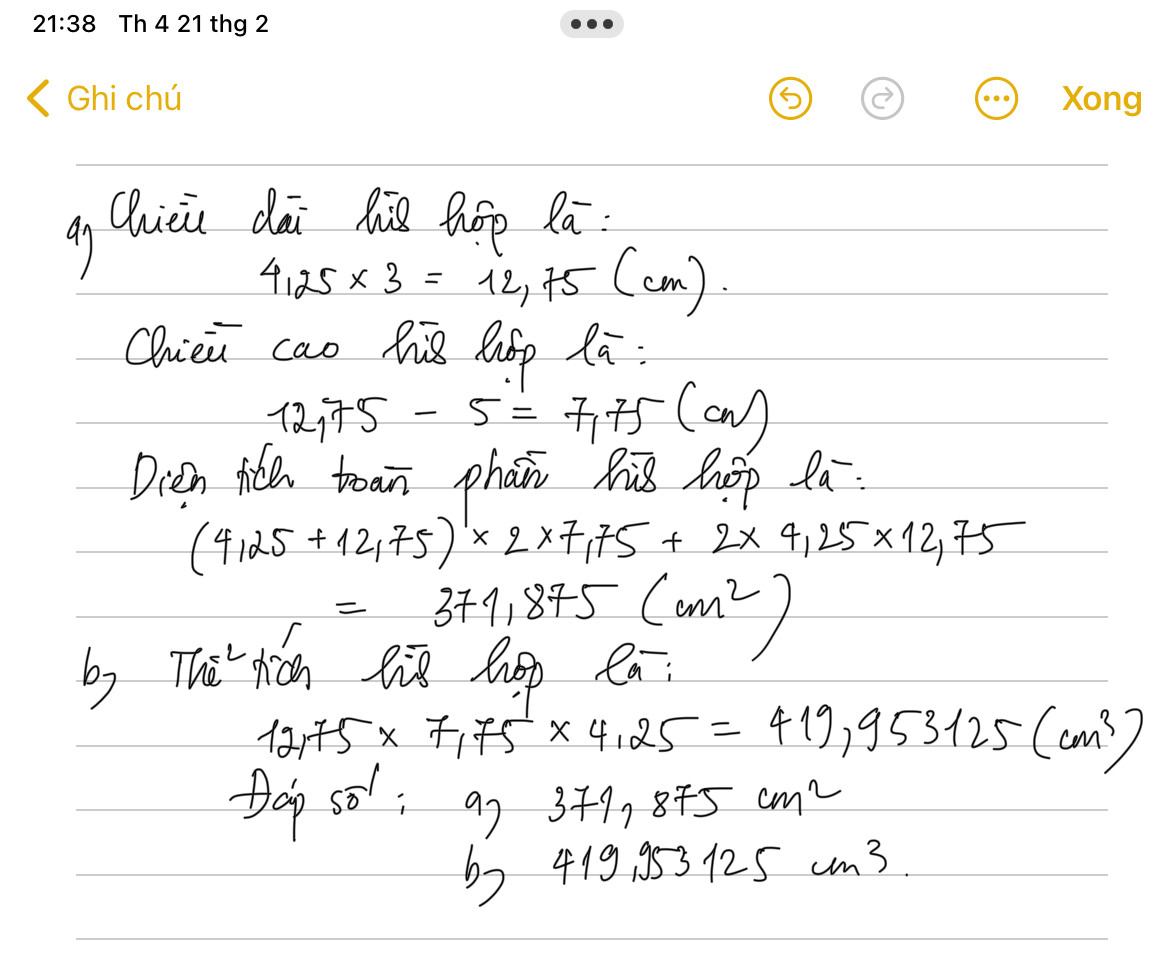 21:38 Th 4 21 thg 2
Ghi chú Xong
a) Chiều dài hình hộp là:
4,25 × 3 = 12,75 (cm).
Chiều cao hình hộp là:
12,75 - 5 = 7,75 (cm)
Diện tích toàn phần hình hộp là:
(4,25 + 12,75) × 2 × 7,75 + 2 × 4,25 × 12,75
= 371,875 (cm²)
b) Thể tích hình hộp là:
12,75 × 7,75 × 4,25 = 419,953125 (cm³)
Đáp số: a) 371,875 cm²
b) 419,953125 cm³.